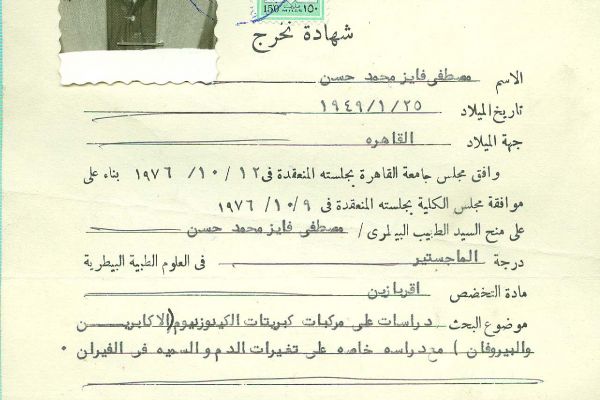 150 MILLS ١٥٠
شهادة تخرج
الاسم مصطفى فايز محمد حسن
تاريخ الميلاد ١٩٤٩/١/٢٥
جهة الميلاد القاهره
وافق مجلس جامعة القاهرة بجلسته المنعقدة فى ١٢ / ١٠ / ١٩٧٦ بناء على
موافقة مجلس الكلية بجلسته المنعقدة فى ٩ / ١٠ / ١٩٧٦
على منح السيد الطبيب البيطرى / مصطفى فايز محمد حسن
درجة الماجستير فى العلوم الطبية البيطرية
مادة التخصص اقربازين
موضوع البحث دراسات على مركبات كبريتات الكينوزنيوم (الاكابرين
والبيروفان ) مع دراسه خاصه على تغيرات الدم و السميه فى الفيران .